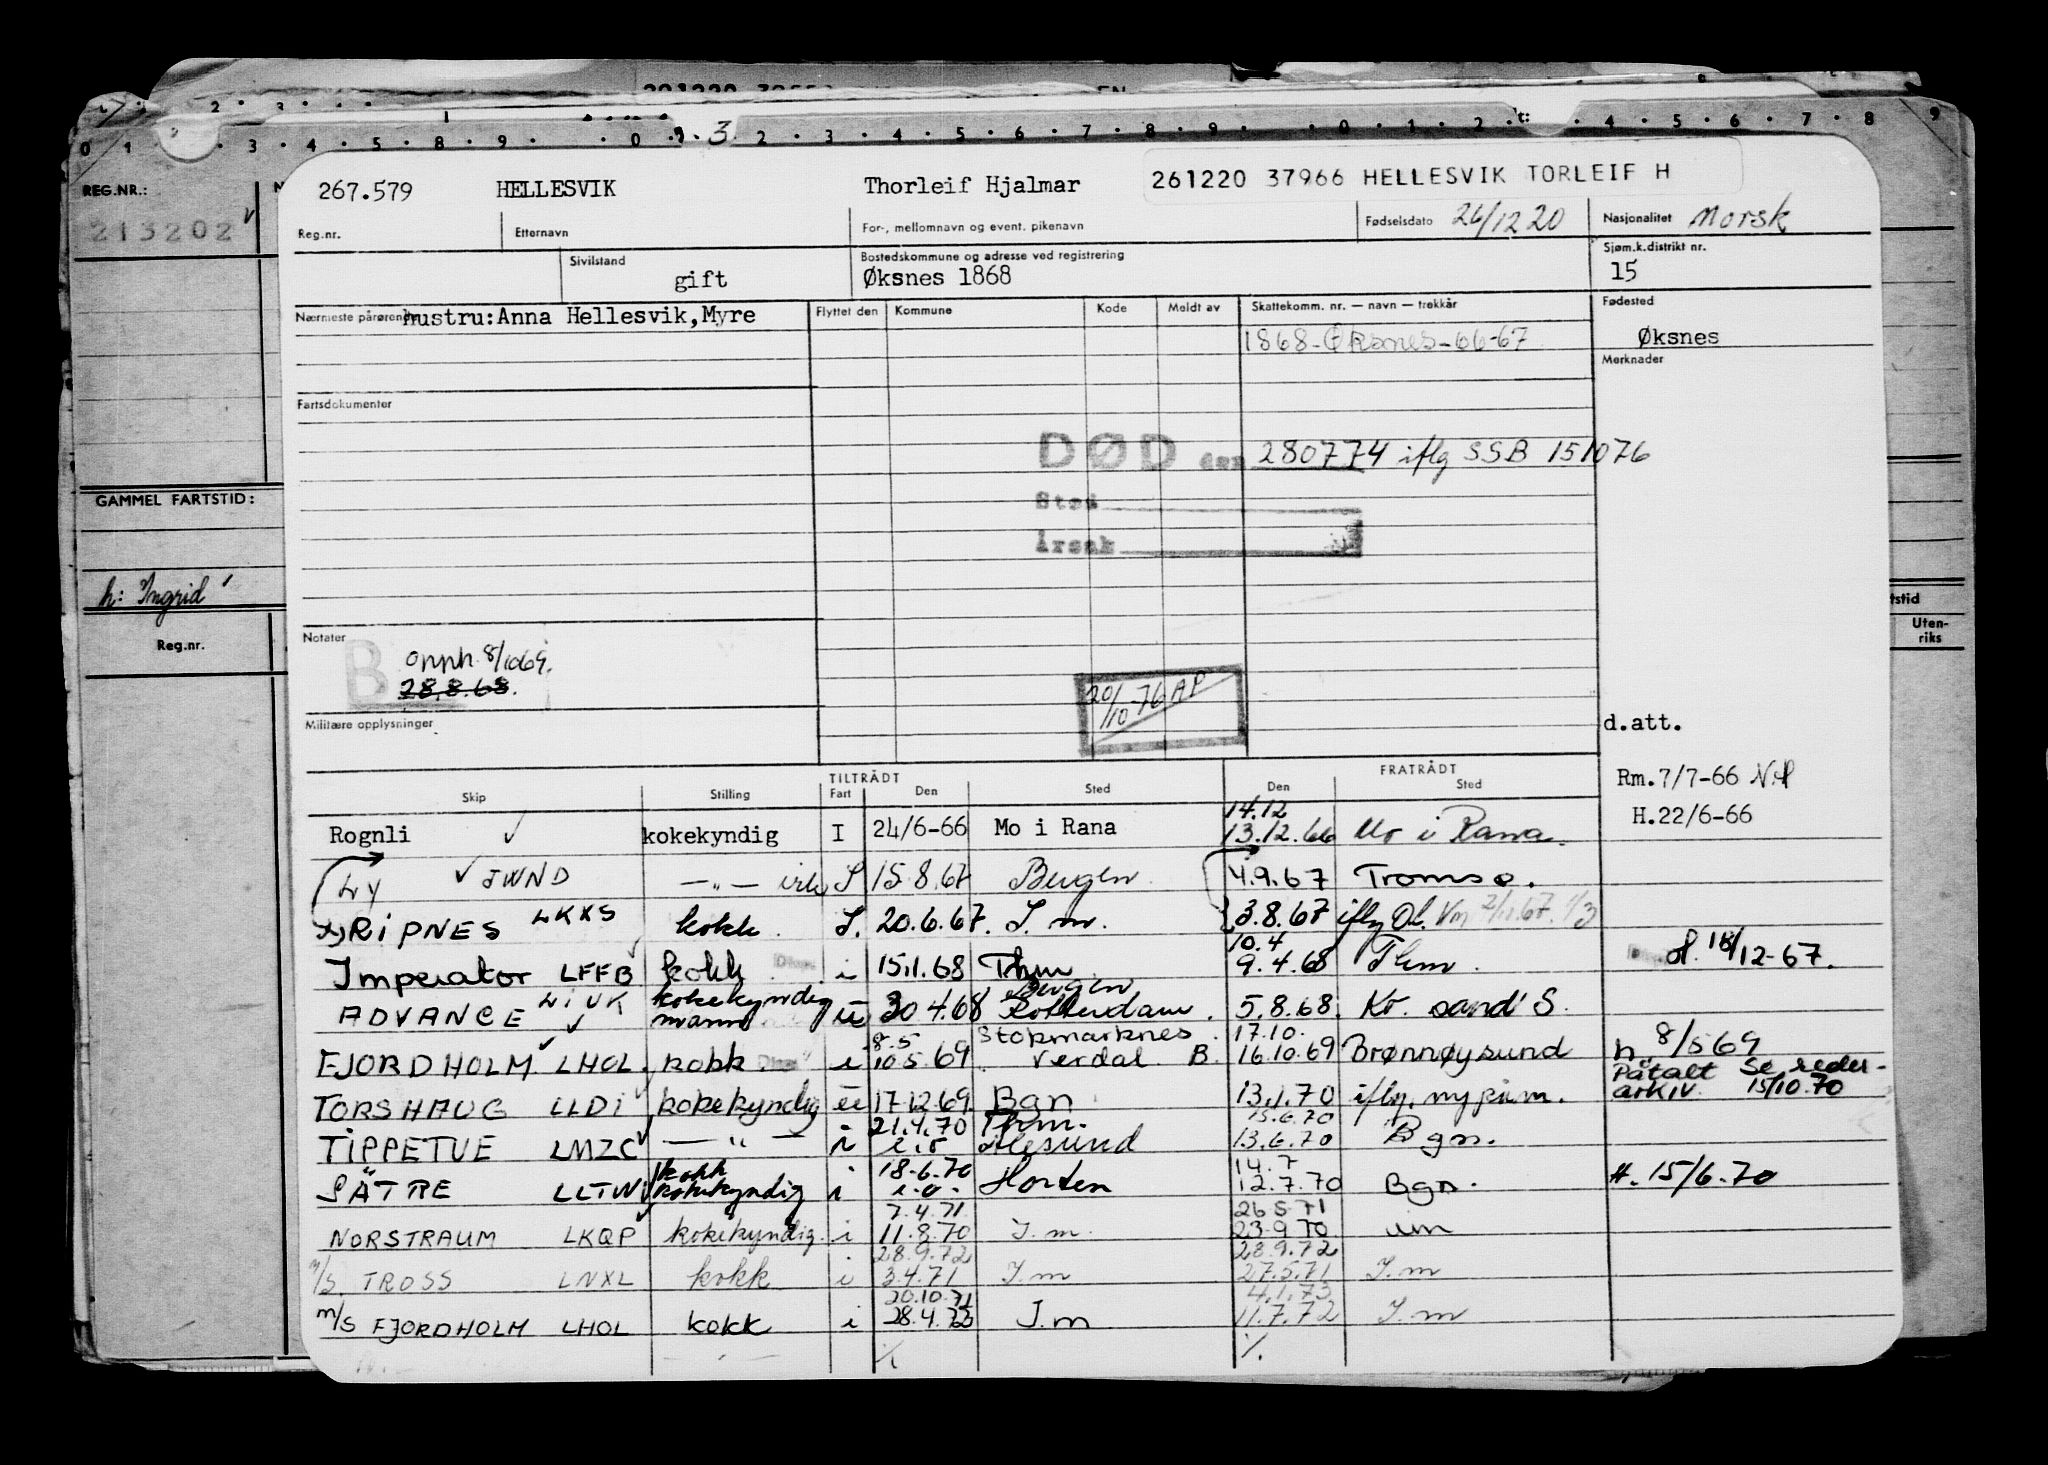 0 1 2 3 4 5 8 9 0 3 2 3 4 5 6 7 8 9 0 1 2 4 5 6 7 8 9
REG.NR.:
213202
GAMMEL FARTSTID:
h: Ingrid
Reg.nr.
267.579 HELLESVIK Thorleif Hjalmar 261220 37966 HELLESVIK TORLEIF H
Reg.nr. Etternavn For-, mellomnavn og event. pikenavn Fødselsdato 26/12 20 Nasjonalitet Norsk
Sivilstand gift
Bostedskommune og adresse ved registrering
Øksnes 1868
Sjøm.k.distrikt nr.
15
Nærmeste pårørende hustru:Anna Hellesvik,Myre
Flyttet den Kommune Kode Meldt av Skattekomm. nr. — navn — trekkår
1868-Øksnes-66-67
Fødested
Øksnes
Merknader
Fartsdokumenter
DØD den 280774 iflg SSB 151076
Sted
Årsak
Notater
B opph. 8/10 69.
28.8.68.
20/10-76 AP
Militære opplysninger
d.att.
Rm.7/7-66
H.22/6-66
TILTRÅDT FRATRÅDT
Skip Stilling Fart Den Sted Den Sted
14.12
Rognli kokekyndig I 24/6-66 Mo i Rana 13.12.66 Mo i Rana.
Ly JWND —„— S 15.8.67 Bergen 4.9.67 Tromsø.
x) RIPNES LKXS kokk S. 20.6.67. I.m. 3.8.67 iflg
10.4
Imperator LFFB kokk i 15.1.68 Thm 9.4.68 Thm. H. 18/12-67.
Bergen
ADVANCE LIUK kokekyndig mann u 30 4.68 Rotterdam. 5.8.68. Kr. sand S.
8.5 Stokmarknes 17.10.
FJORDHOLM LHOL kokk i 10.5.69 Verdal B. 16.10.69 Brønnøysund h. 8/5 69
Påtalt Se rederarkiv. 15/10.70
TORSHAUG LLDI kokekyndig u 17.12.69. Bgn 13.1.70 iflg.
21.4.70 Thm. 15.6.70
TIPPETUE LMZC —„— i i.o Ålesund 13.6.70 Bgn.
kokk 18-6.70 14.7
SÄTRE LLTW kokekyndig i i.o. Horten 12.7.70 Bgn. H. 15/6.70
7.4.71 26 5 71
NORSTRAUM LKQP kokekyndig. i 11.8.70 I.m. 23.9 70 im
28.9.72 28.9.72
M/S TROSS LNXL kokk i 3.4.71 I.m 27.5.71 I.m
20.10.71 4.1.73
M/S FJORDHOLM LHOL kokk i 28.4.72 I.m 11.7.72 I.m
tstid
Uten-
riks